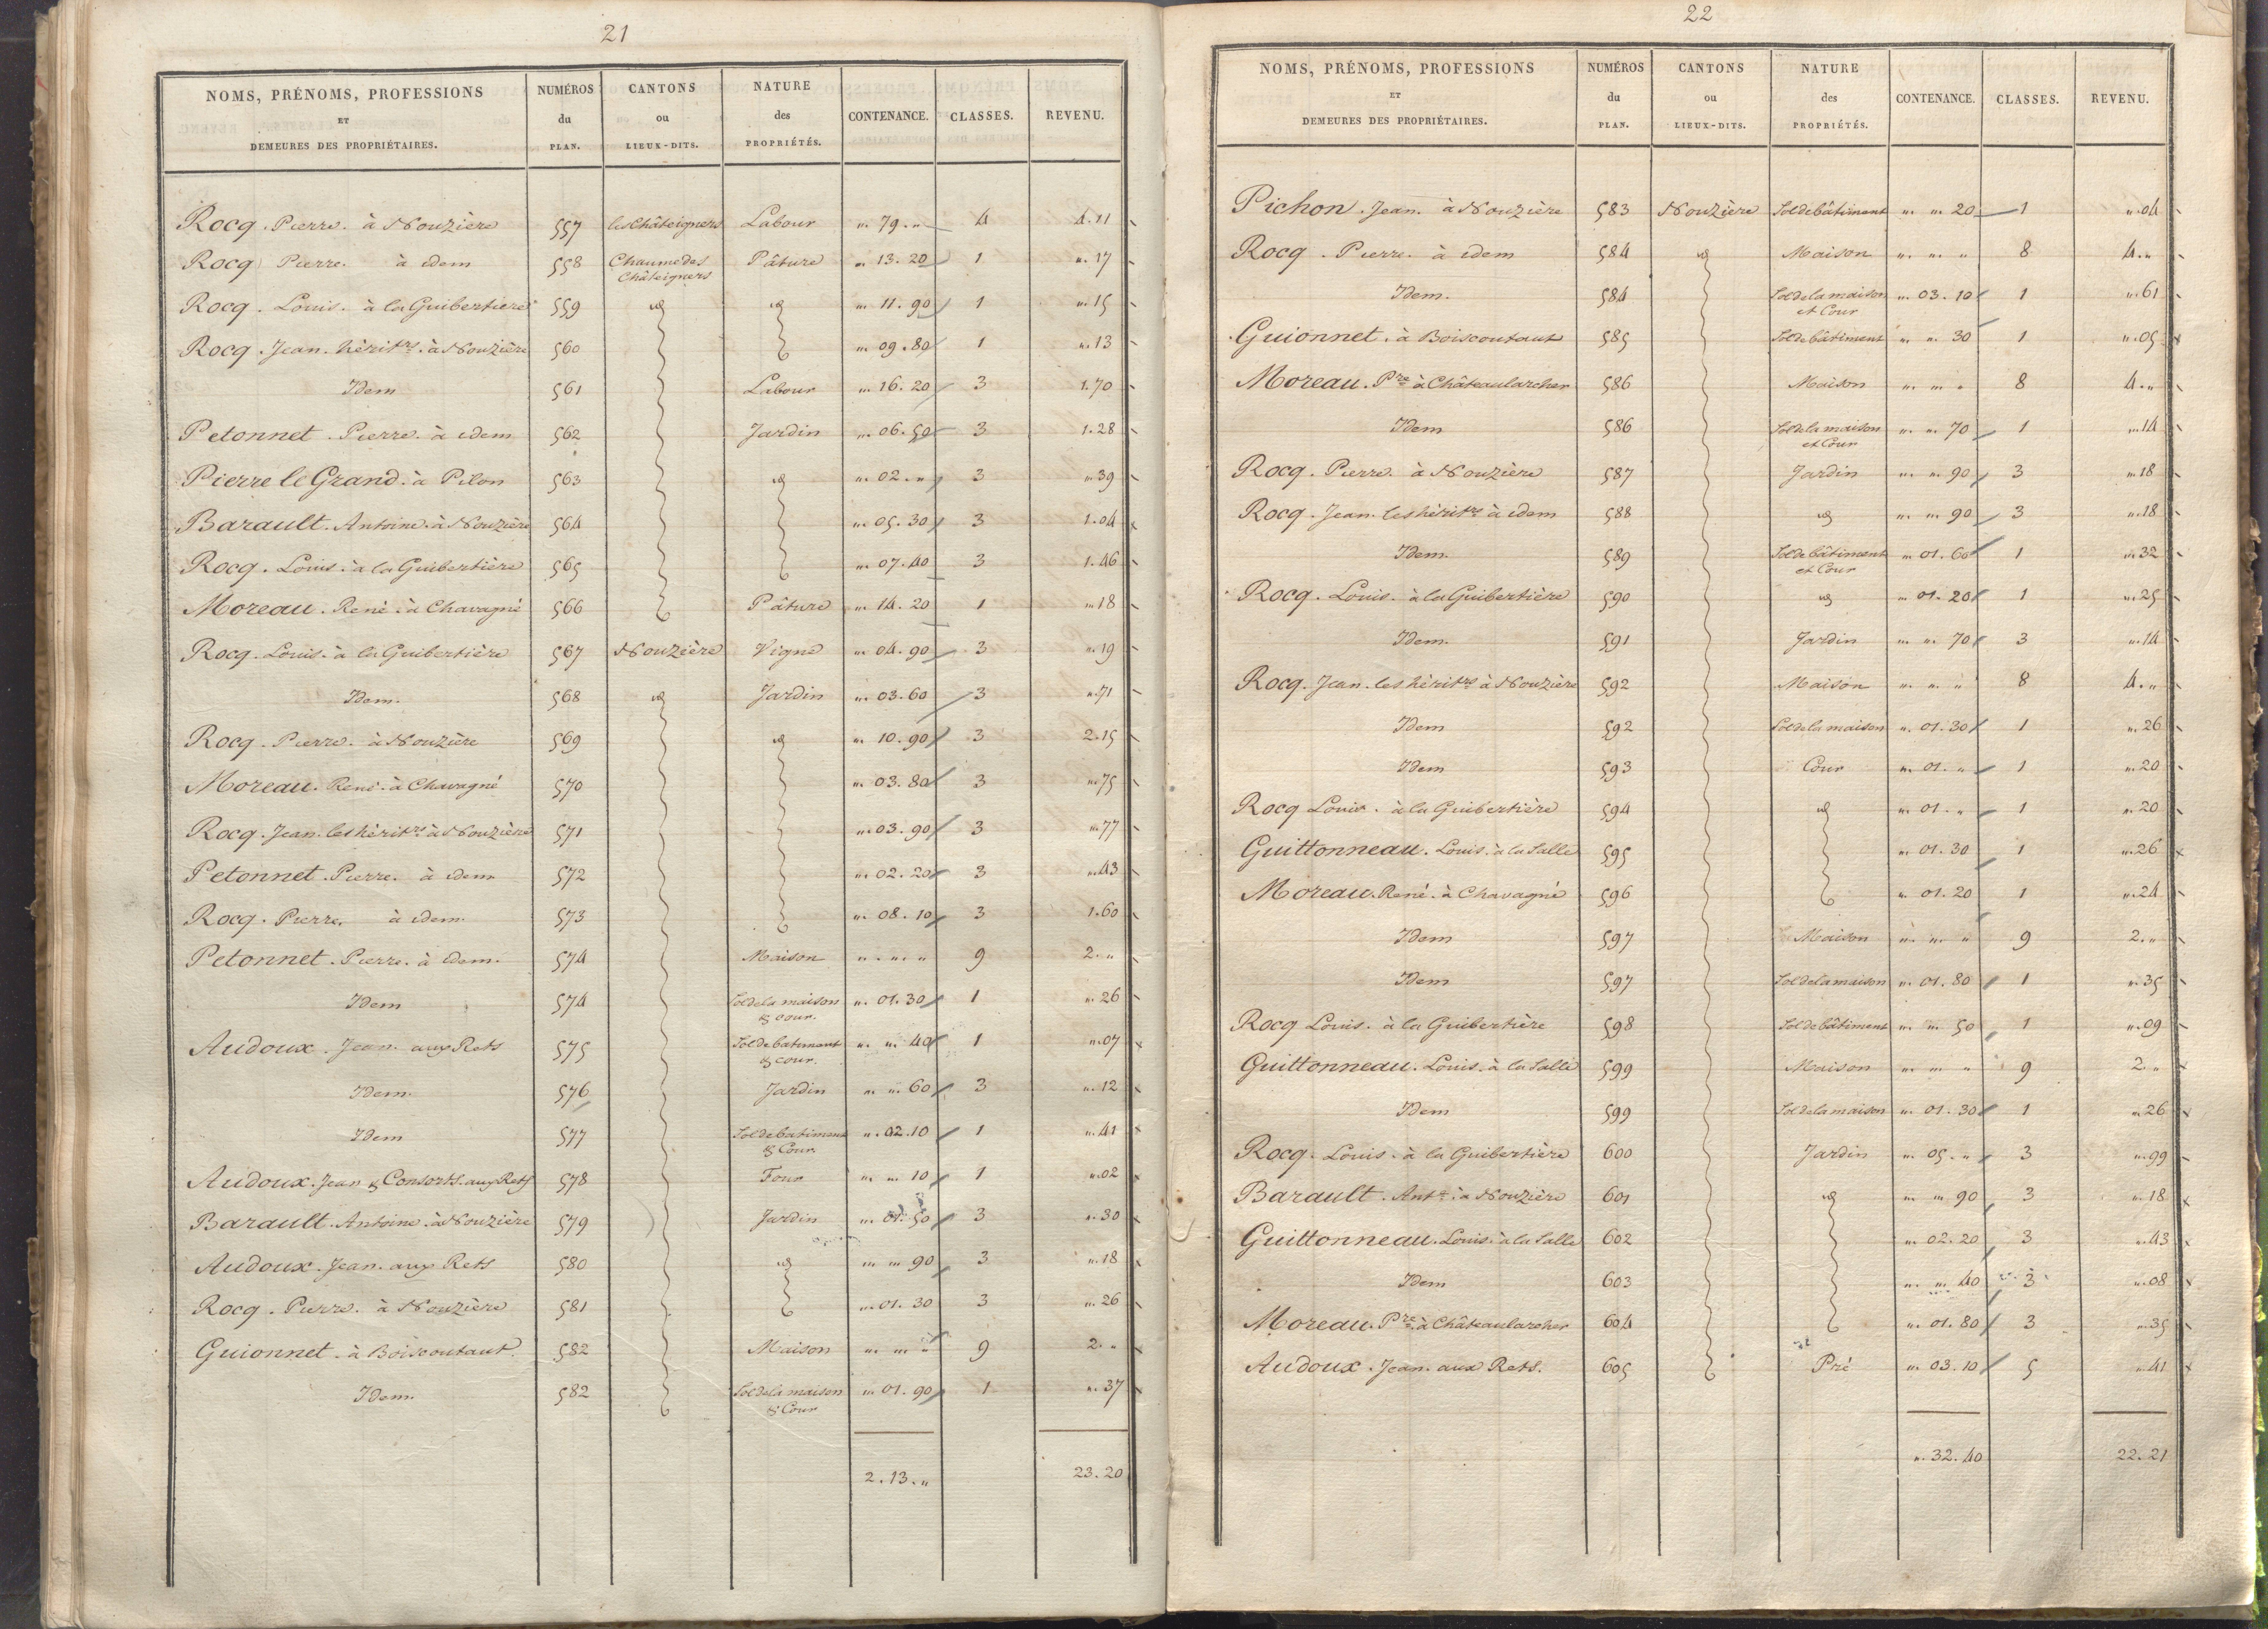 21
NOMS, PRÉNOMS, PROFESSIONS ET DEMEURES DES PROPRIÉTAIRES. NUMÉROS du PLAN. CANTONS ou LIEUX-DITS. NATURE des PROPRIÉTÉS. CONTENANCE. CLASSES. REVENU.
Rocq. Pierre. à Nouzière 557 les Châteigners Labour ". 79. " 4 4.11
Rocq Pierre. à idem 558 Chaume des Châteigners Pâture ". 13. 20 1 ". 17
Rocq. Louis. à la Guibertiere 559 id id ". 11. 90 1 ". 15
Rocq. Jean. hérit.rs à Nouzière 560 ". 09. 80 1 ". 13
Idem 561 Labour ". 16. 20 3 1.70
Petonnet. Pierre. à idem 562 Jardin ". 06. 50 3 1.28
Pierre le Grand. à Pilon 563 id ". 02. " 3 ". 39
Barault. Antoine. à Nouzière 564 ". 05. 30 3 1.04
Rocq. Louis. à la Guibertière 565 ". 07. 40 3 1.46
Moreau. René. à Chavagné 566 Pâture ". 14. 20 1 ". 18
Rocq. Louis. à la Guibertière 567 Nouzière Vigne ". 04. 90 3 ". 19
Idem. 568 id Jardin ". 03. 60 3 ". 71
Rocq. Pierre. à Nouzière 569 id ". 10. 90 3 2.15
Moreau. René. à Chavagné 570 ". 03. 80 3 ". 75
Rocq. Jean. les hérit.rs à Nouzière 571 ". 03. 90 3 ". 77
Petonnet. Pierre. à idem 572 ". 02. 20 3 ". 43
Rocq. Pierre. à idem. 573 ". 08. 10 3 1.60
Petonnet. Pierre. à idem. 574 Maison ". ". " 9 2. "
Idem 574 Sol de la maison & cour. ". 01. 30 1 ". 26
Audoux. Jean. aux Rets 575 Sol de batiment & cour. ". ". 40 1 ". 07
Idem. 576 Jardin ". ". 60 3 ". 12
Idem 577 Sol de batiment & Cour ". 02. 10 1 ". 41
Audoux. Jean & Consorts. aux Rets 578 Four ". ". 10 1 ". 02
Barault. Antoine. à Nouzière 579 Jardin ". 01. 50 3 ". 30
Audoux. Jean. aux Rets 580 id ". ". 90 3 ". 18
Rocq. Pierre. à Nouzière 581 ". 01. 30 3 ". 26
Guionnet. à Boiscoutaut. 582 Maison ". ". " 9 2. "
Idem. 582 Sol de la maison & Cour ". 01. 90 1 ". 37
2. 13. " 23. 20
22
NOMS, PRÉNOMS, PROFESSIONS ET DEMEURES DES PROPRIÉTAIRES. NUMÉROS du PLAN. CANTONS ou LIEUX-DITS. NATURE des PROPRIÉTÉS. CONTENANCE. CLASSES. REVENU.
Pichon. Jean. à Nouzière 583 Nouzière Sol de bâtiment ". ". 20 1 ". 04
Rocq. Pierre. à idem 584 id Maison ". ". " 8 4. "
Idem. 584 Sol de la maison et Cour ". 03. 10 1 ". 61
Guionnet. à Boiscoutaut 585 Sol de bâtiment ". ". 30 1 ". 05
Moreau. Pre à Châteaularcher 586 Maison ". ". " 8 4. "
Idem 586 Sol de la maison et Cour ". ". 70 1 ". 14
Rocq. Pierre. à Nouzière 587 Jardin ". ". 90 3 ". 18
Rocq. Jean. les hérit.rs à idem 588 id ". ". 90 3 ". 18
Idem. 589 Sol de bâtiment et Cour ". 01. 60 1 ". 32
Rocq. Louis. à la Guibertière 590 id ". 01. 20 1 ". 25
Idem. 591 Jardin ". ". 70 3 ". 14
Rocq. Jean. les hérit.rs à Nouzière 592 Maison ". ". " 8 4. "
Idem 592 Sol de la maison ". 01. 30 1 ". 26
Idem 593 Cour ". 01. " 1 ". 20
Rocq Louis. à la Guibertière 594 id ". 01. " 1 ". 20
Guittonneau. Louis. à la Salle 595 ". 01. 30 1 ". 26
Moreau. René. à Chavagné 596 ". 01. 20 1 ". 24
Idem 597 Maison ". ". " 9 2. "
Idem 597 Sol de la maison ". 01. 80 1 ". 35
Rocq Louis. à la Guibertière 598 Sol de bâtiment ". ". 50 1 ". 09
Guittonneau. Louis. à la Salle 599 Maison ". ". " 9 2. "
Idem 599 Sol de la maison ". 01. 30 1 ". 26
Rocq. Louis. à la Guibertière 600 Jardin ". 05. " 3 ". 99
Barault. Ant.e à Nouzière 601 id ". ". 90 3 ". 18
Guittonneau. Louis. à la Salle 602 ". 02. 20 3 ". 43
Idem 603 ". ". 40 3 ". 08
Moreau. Pre à Châteaularcher 604 ". 01. 80 3 ". 35
Audoux. Jean. aux Rets. 605 Pré ". 03. 10 5 ". 41
". 32. 40 22. 21